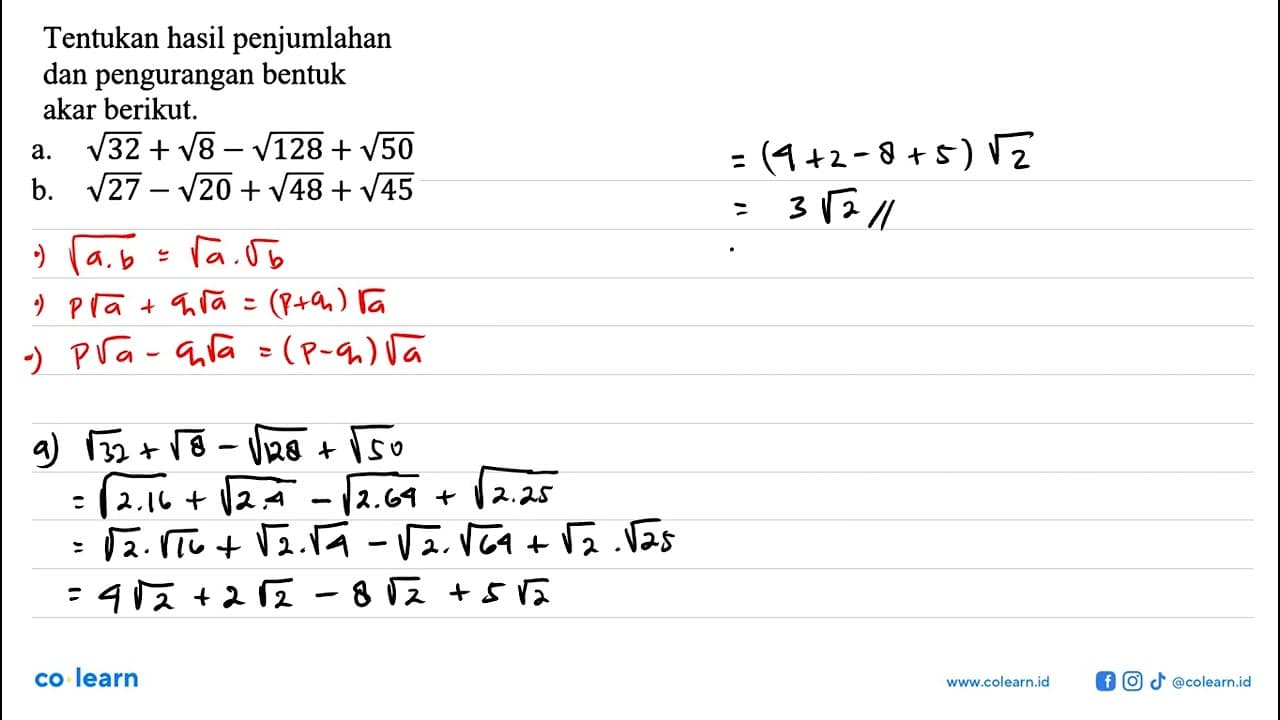 Tentukan hasil penjumlahan
dan pengurangan bentuk
akar berikut.
a. √32 + √8 − √128 + √50
b. √27 − √20 + √48 + √45
•) √a.b = √a . √b
•) p√a + q√a = (p+q) √a
•) p√a − q√a = (p−q) √a
a) √32 + √8 − √128 + √50
= √2.16 + √2.4 − √2.64 + √2.25
= √2 . √16 + √2 . √4 − √2 . √64 + √2 . √25
= 4√2 + 2√2 − 8√2 + 5√2
= (4 + 2 − 8 + 5) √2
= 3√2 //
co learn
www.colearn.id
@colearn.id